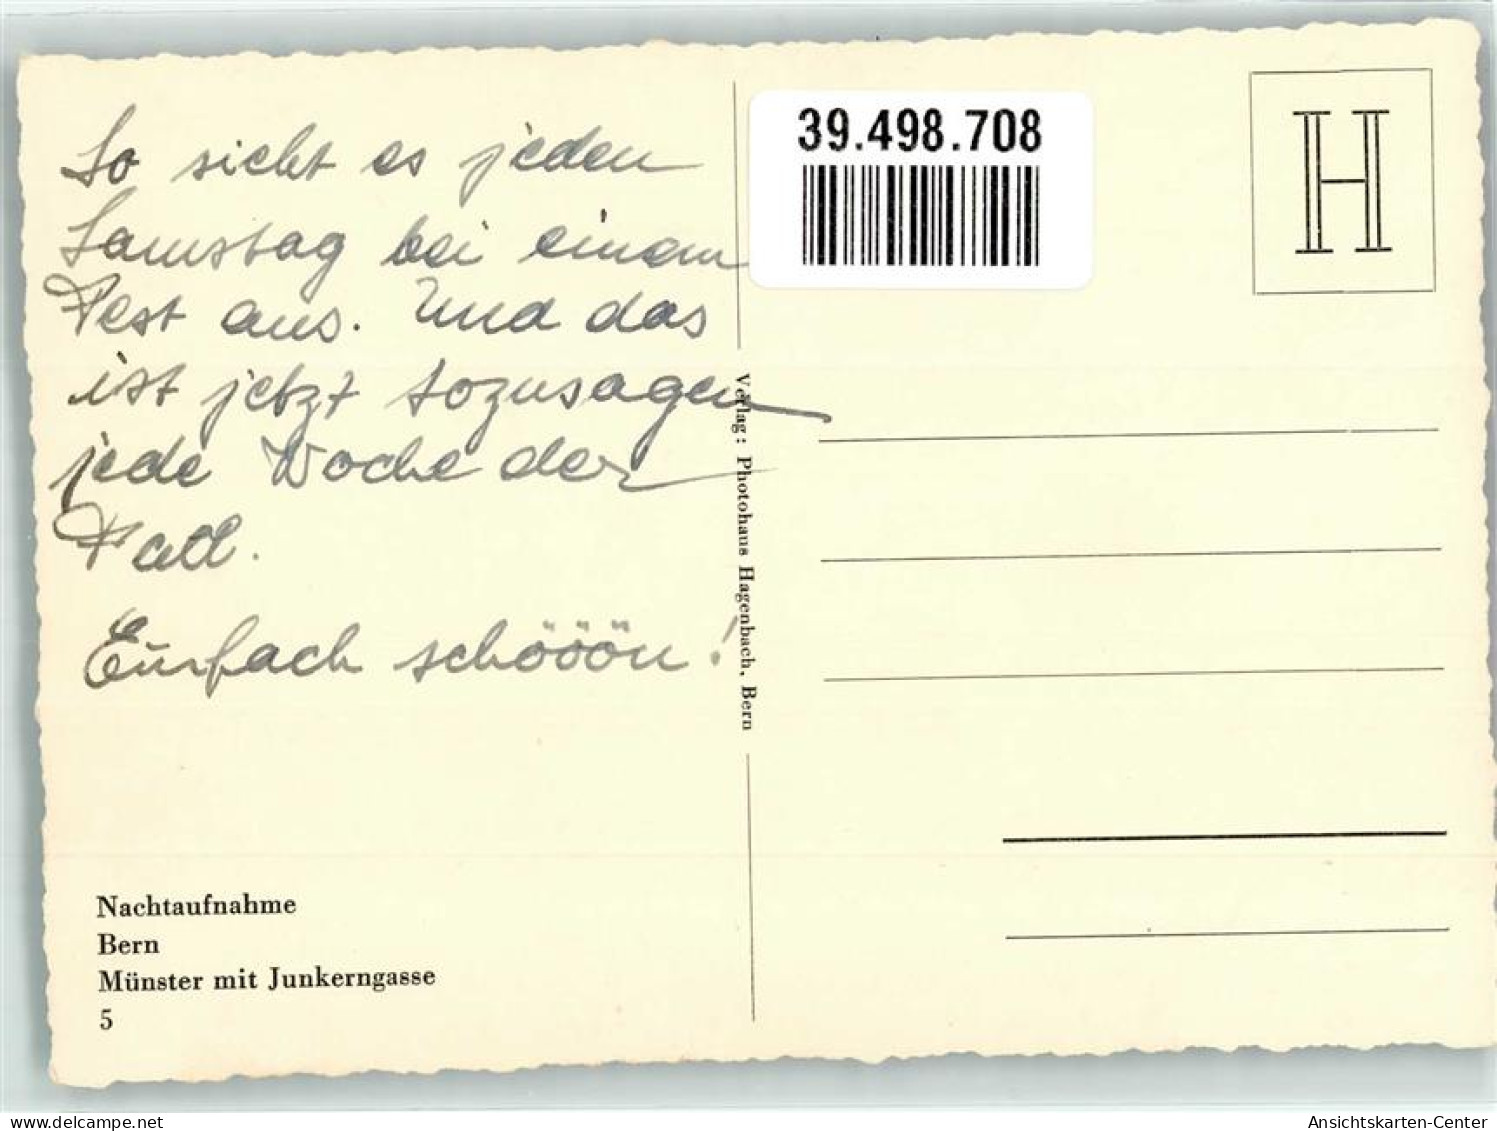 So sieht es jeden
Samstag bei einem
Fest aus. Und das
ist jetzt sozusagen
jede Woche der
Fall.
Einfach schööön!
Nachtaufnahme
Bern
Münster mit Junkerngasse
5
Verlag: Photohaus Hagenbach, Bern
39.498.708
H
delcampe.net
Ansichtskarten-Center